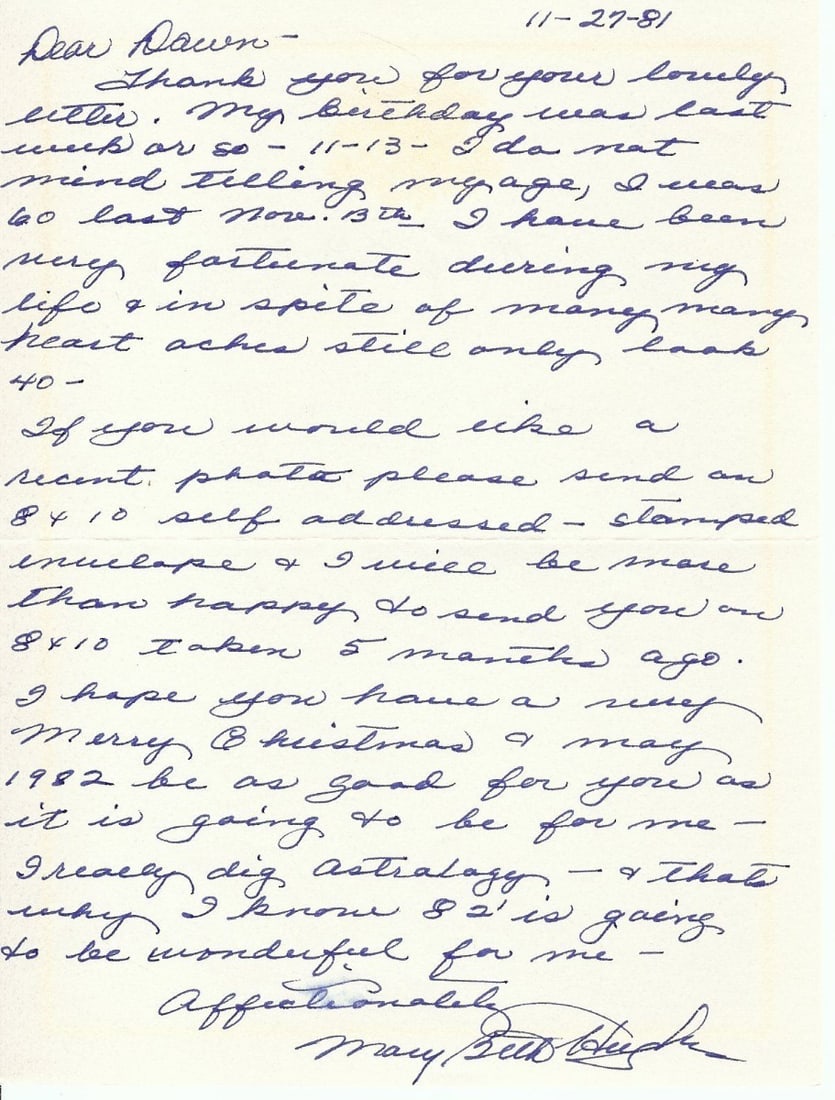 11-27-81
Dear Dawn-
Thank you for your lovely
letter. My birthday was last
week or so - 11-13- I do not
mind telling my age, I was
60 last Nov. 13th I have been
very fortunate during my
life & in spite of many many
heart aches still only look
40-
If you would like a
recent photo please send an
8x10 self addressed - stamped
envelope & I will be more
than happy to send you an
8x10 taken 5 months ago.
I hope you have a very
Merry Christmas & may
1982 be as good for you as
it is going to be for me -
I really dig Astrology - & thats
why I know 82' is going
to be wonderful for me -
Affectionately
Mary Beth Hughes